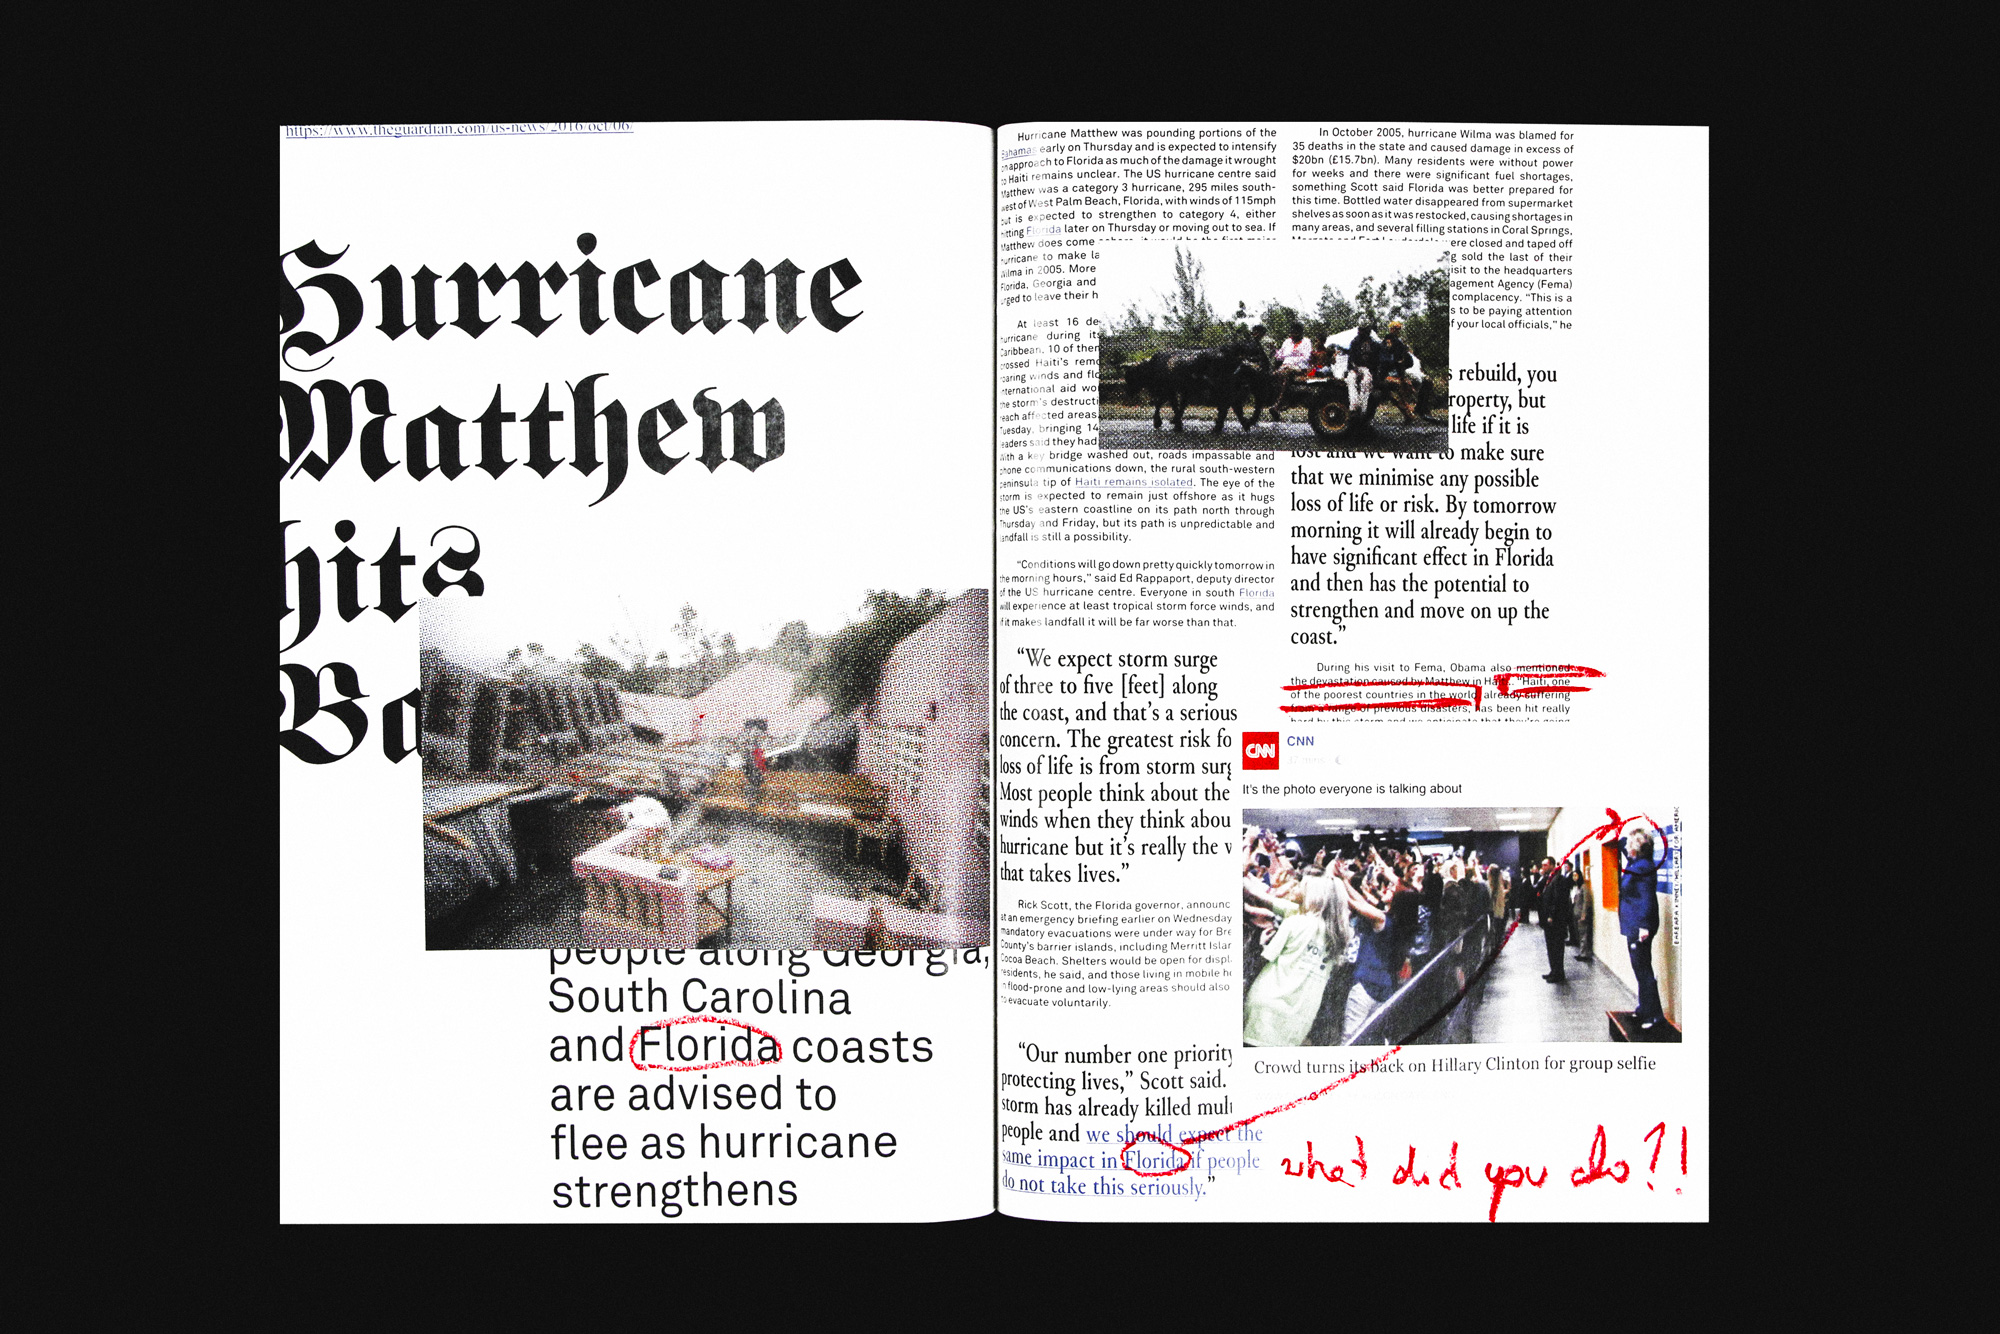 https://www.theguardian.com/us-news/2016/oct/06/
Hurricane
Matthew
hits
Ba
people along Georgia,
South Carolina
and Florida coasts
are advised to
flee as hurricane
strengthens
Hurricane Matthew was pounding portions of the
Bahamas early on Thursday and is expected to intensify
approach to Florida as much of the damage it wrought
to Haiti remains unclear. The US hurricane centre said
Matthew was a category 3 hurricane, 295 miles south-
west of West Palm Beach, Florida, with winds of 115mph
but is expected to strengthen to category 4, either
hitting Florida later on Thursday or moving out to sea. If
Matthew does come
hurricane to make la
Wilma in 2005. More
Florida, Georgia and
urged to leave their h
At least 16 de
hurricane during its
Caribbean. 10 of then
crossed Haiti's remo
roaring winds and flo
international aid wo
the storm's destructi
reach affected areas.
Tuesday, bringing 14
leaders said they had
With a key bridge washed out, roads impassable and
phone communications down, the rural south-western
peninsula tip of Haiti remains isolated. The eye of the
storm is expected to remain just offshore as it hugs
the US's eastern coastline on its path north through
Thursday and Friday, but its path is unpredictable and
landfall is still a possibility.
"Conditions will go down pretty quickly tomorrow in
the morning hours," said Ed Rappaport, deputy director
of the US hurricane centre. Everyone in south Florida
will experience at least tropical storm force winds, and
if it makes landfall it will be far worse than that.
“We expect storm surge
of three to five [feet] along
the coast, and that’s a serious
concern. The greatest risk fo
loss of life is from storm surg
Most people think about the
winds when they think abou
hurricane but it’s really the w
that takes lives.”
Rick Scott, the Florida governor, announc
at an emergency briefing earlier on Wednesday
mandatory evacuations were under way for Bre
County's barrier islands, including Merritt Islan
Cocoa Beach. Shelters would be open for displ
residents, he said, and those living in mobile ho
flood-prone and low-lying areas should also
to evacuate voluntarily.
“Our number one priority
protecting lives,” Scott said.
storm has already killed mult
people and we should expect the
same impact in Florida if people
do not take this seriously.”
In October 2005, hurricane Wilma was blamed for
35 deaths in the state and caused damage in excess of
$20bn (£15.7bn). Many residents were without power
for weeks and there were significant fuel shortages,
something Scott said Florida was better prepared for
this time. Bottled water disappeared from supermarket
shelves as soon as it was restocked, causing shortages in
many areas, and several filling stations in Coral Springs,
Margate and Fort Lauderdale were closed and taped off
g sold the last of their
isit to the headquarters
agement Agency (Fema)
complacency. "This is a
s to be paying attention
f your local officials," he
s rebuild, you
roperty, but
life if it is
lost and we want to make sure
that we minimise any possible
loss of life or risk. By tomorrow
morning it will already begin to
have significant effect in Florida
and then has the potential to
strengthen and move on up the
coast.”
During his visit to Fema, Obama also mentioned
the devastation caused by Matthew in Haiti. "Haiti, one
of the poorest countries in the world, already suffering
from a range of previous disasters, has been hit really
hard by this storm and we anticipate that they're going
CNN
CNN
It's the photo everyone is talking about
Crowd turns its back on Hillary Clinton for group selfie
what did you do?!